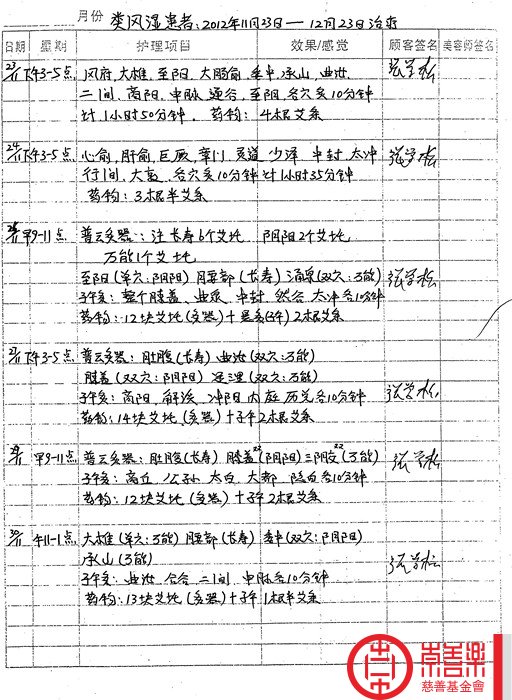 月份 类风湿患者:2012年11月23日—12月23日治疗
日期 星期 护理项目 效果/感觉 顾客签名 美容师签名
23/11 下午3-5点 风府,大椎,至阳,大肠俞,委中,承山,曲池
二间,商阳,申脉,通谷,至阴,各穴灸10分钟
计1小时50分钟, 药物:4根艾条
24/11 下午3-5点 心俞,肝俞,巨厥,章门,灵道,少泽,中封,太冲
行间,大敦,各穴灸10分钟 计1小时35分钟
药物:3根半艾条
早9-11点 普云灸器:注长寿6个艾坨 阴阳2个艾坨
万能1个艾坨
至阳(单穴:阴阳) 腰部(长寿) 涌泉(双穴:万能)
子午灸:整个膝盖、曲泉、中封、然谷 太冲各10分钟
药物:12块艾坨(灸器)十 2根艾条
下午3-5点 普云灸器:肚腹(长寿) 曲池(双穴:万能)
膝盖(双穴:阴阳) 足三里(双穴:万能)
子午灸:商阳、解溪、冲阳 内庭 历兑各10分钟
药物:14块艾坨(灸器)十子午2根艾条
早9-11点 普云灸器:肚腹(长寿) 膝盖(阴阳)三阴交(万能)
子午灸:商丘 公孙 太白 大都 隐白各10分钟
药物:12块艾坨(灸器)十子午2根艾条
午11-1点 大椎(单穴:万能) 腰部(长寿) 委中(双穴:阴阳)
承山(万能)
子午灸:曲池 合谷 二间 申脉各10分钟
药物:13块艾坨(灸器)十子午1根半艾条
崇善樂
慈善基金會